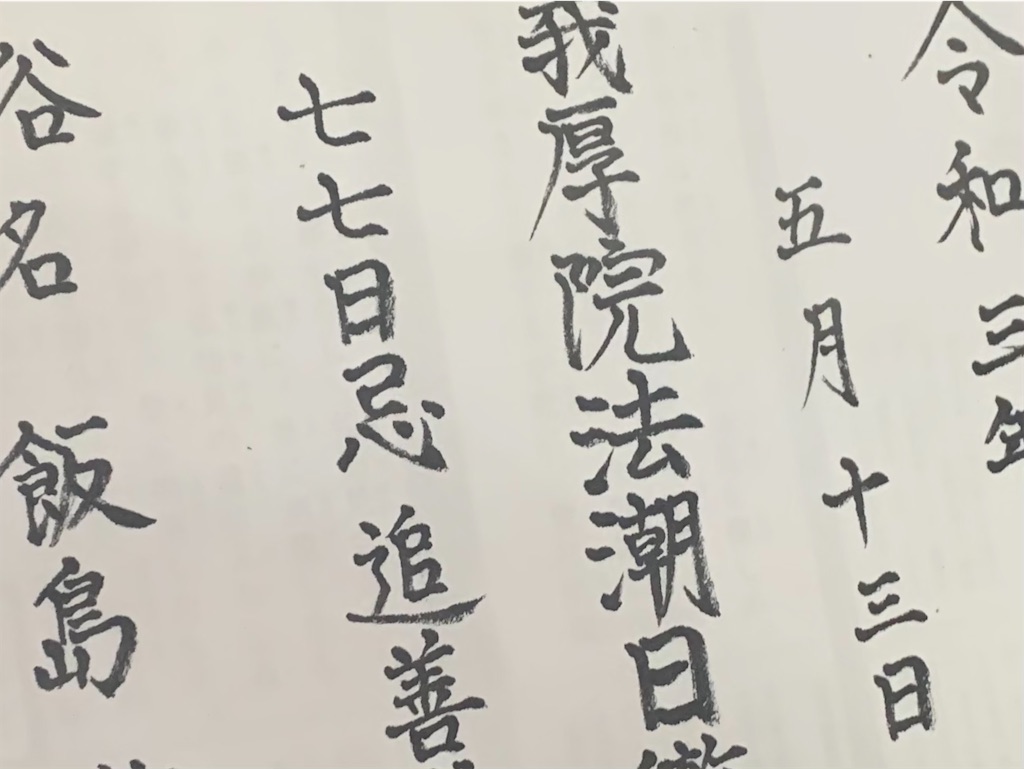 令和三年
五月十三日
厚院法潮日
七七日忌 追善
谷名 飯島